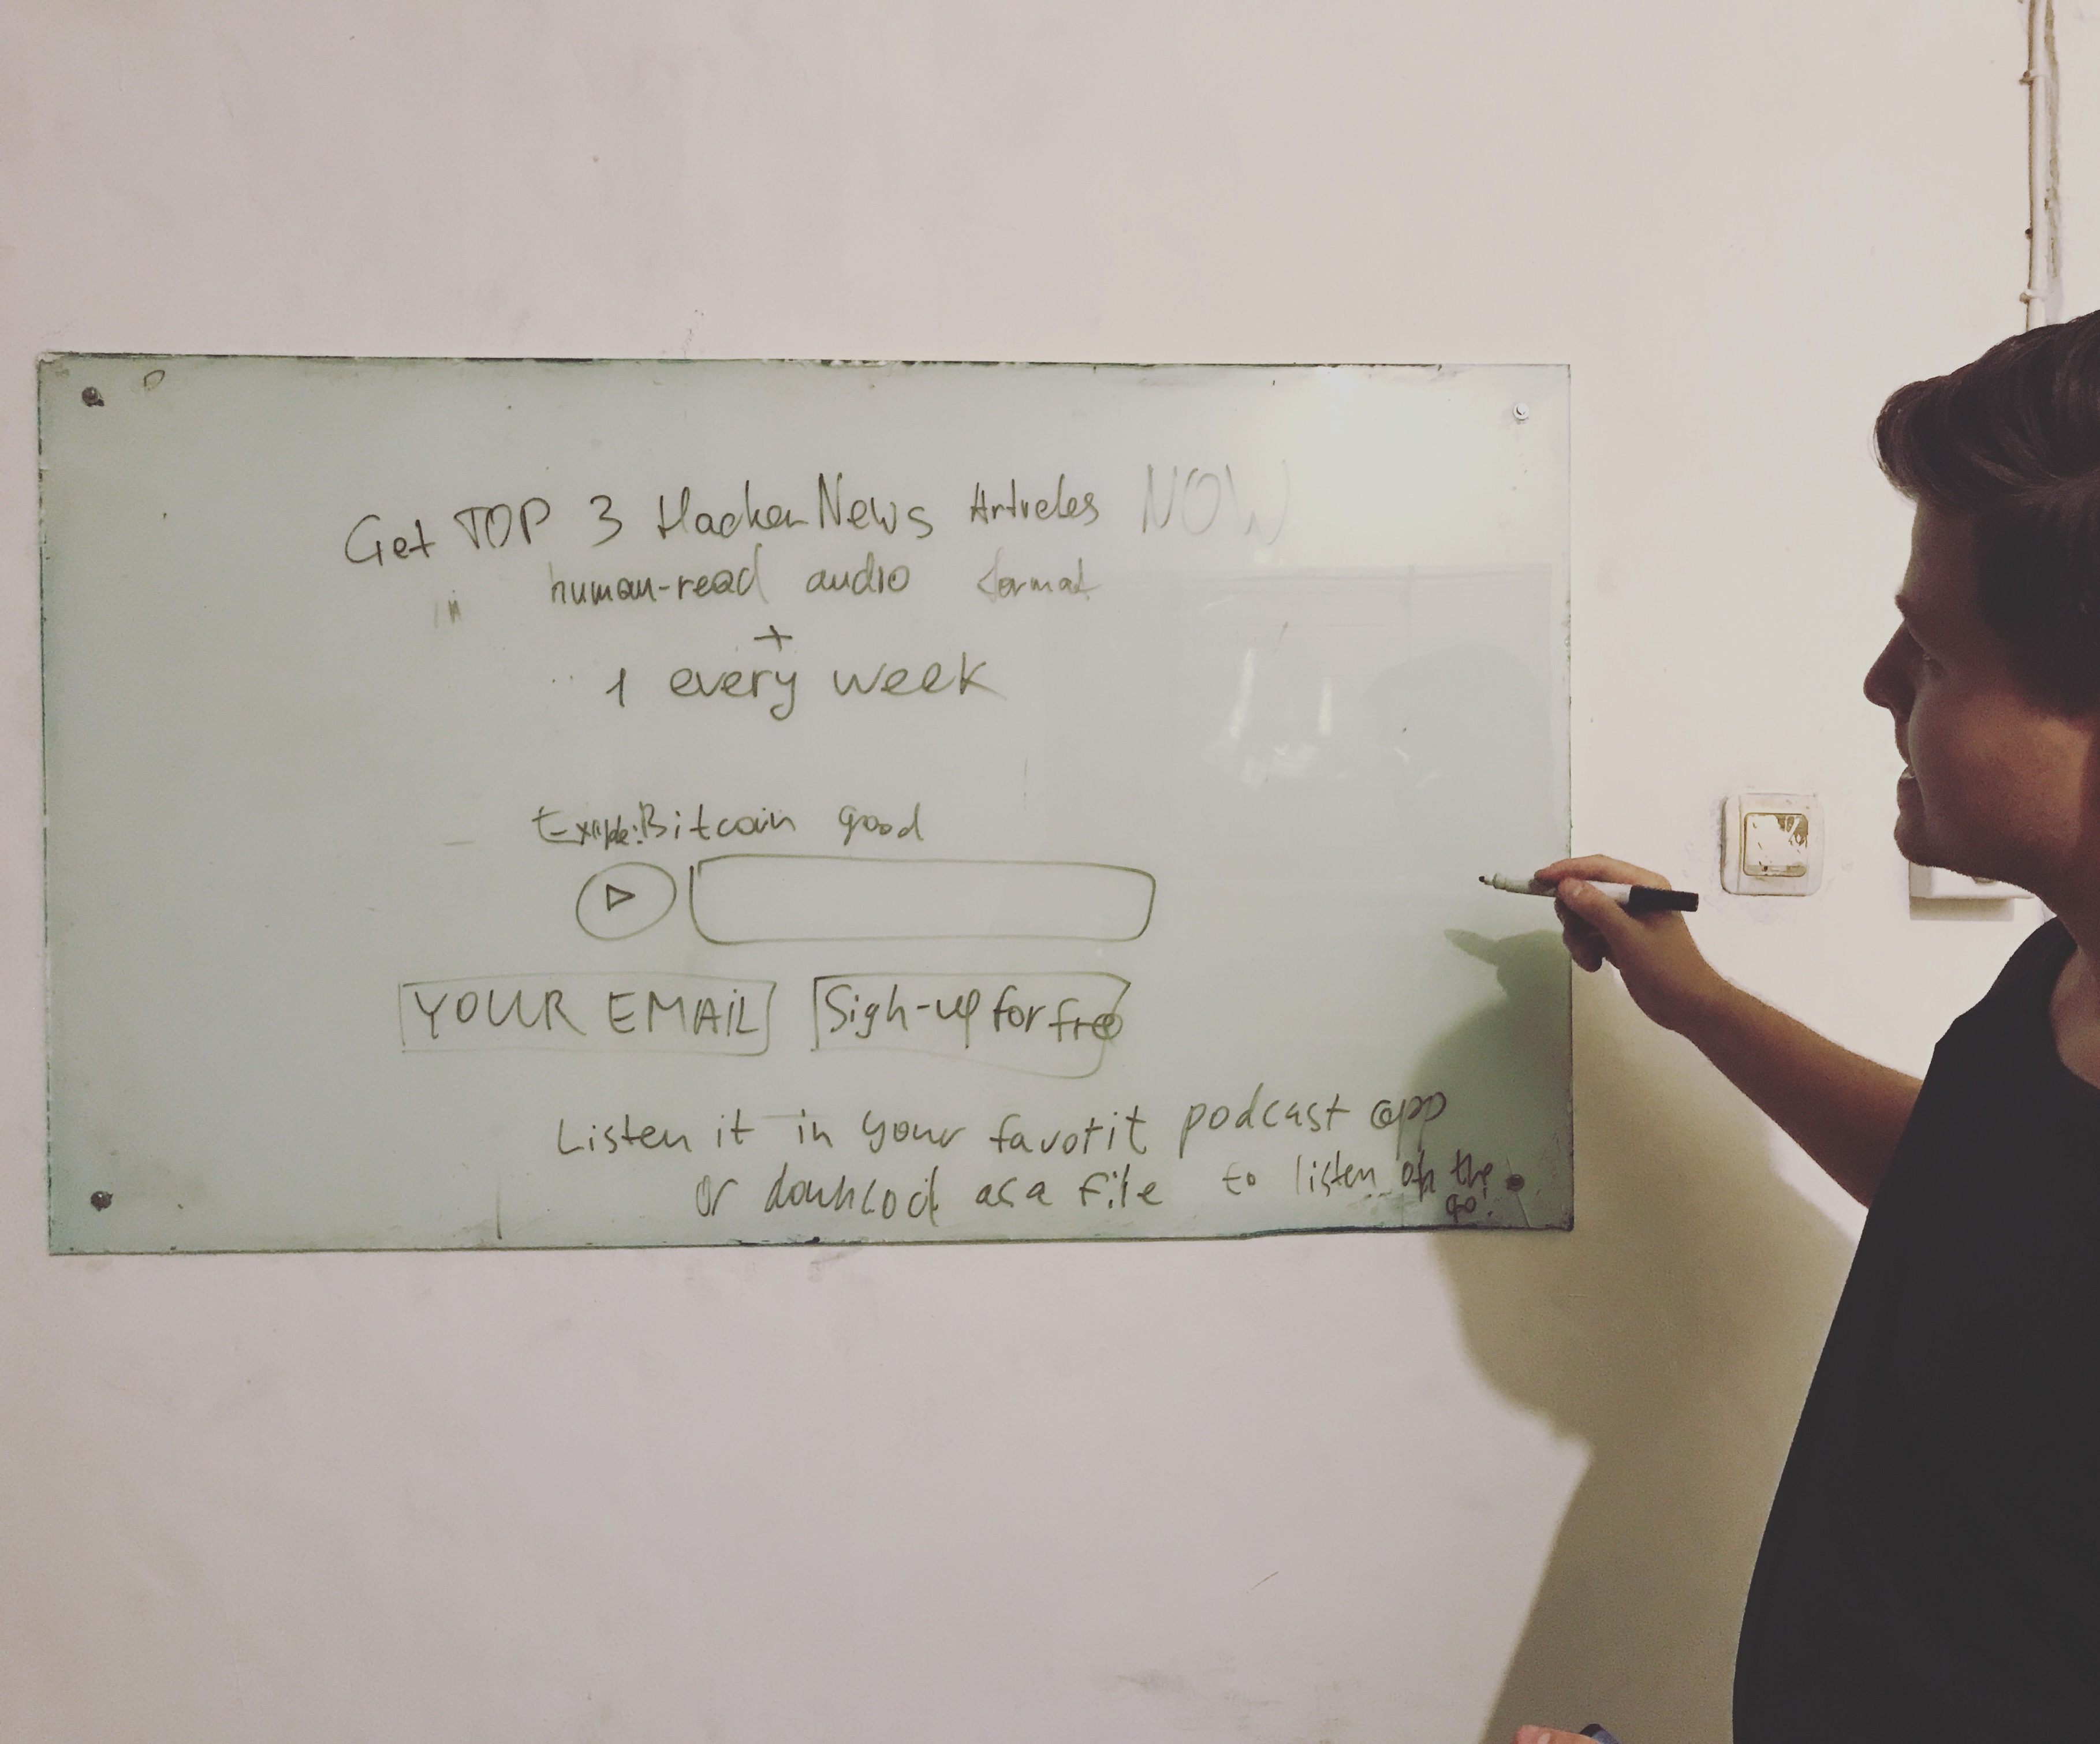 Get TOP 3 HackerNews Articles NOW
in human-read audio format
+
1 every week
Exmple: Bitcoin good
YOUR EMAIL
Sigh-up for free
Listen it in your favorit podcast app
or downlod as a file to listen on the
go!